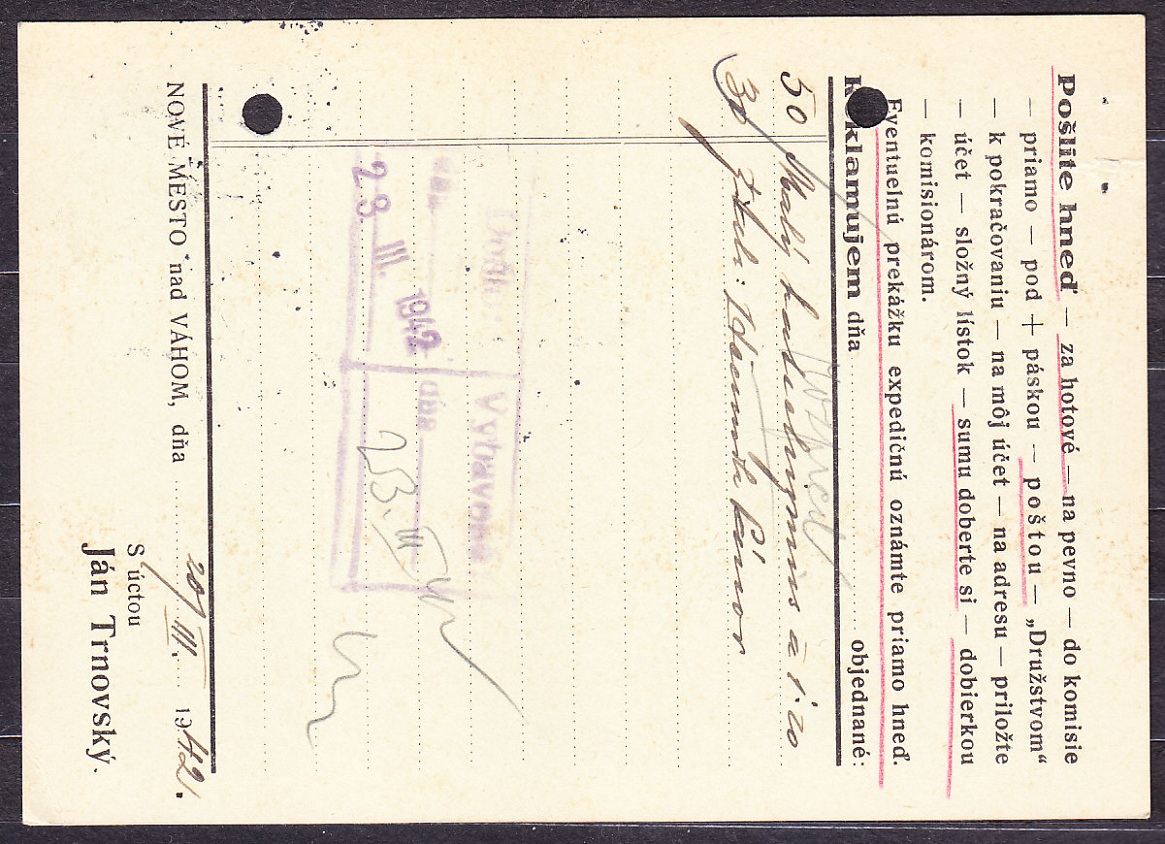 Pošlite hneď — za hotové — na pevno — do komisie
— priamo — pod + páskou — poštou — „Družstvom“
— k pokračovaniu — na môj účet — na adresu — priložte
— účet — složný lístok — sumu doberte si — dobierkou
— komisionárom.
Eventuelnú prekážku expedičnú oznámte priamo hneď
klamujem dňa objednané:
50 Malý katechizmus à 1.20
30
Došlo: Vybavené
dňa
23. III. 1942 23. III
NOVÉ MESTO nad VÁHOM, dňa 20/III. 1942.
S úctou
Ján Trnovský.